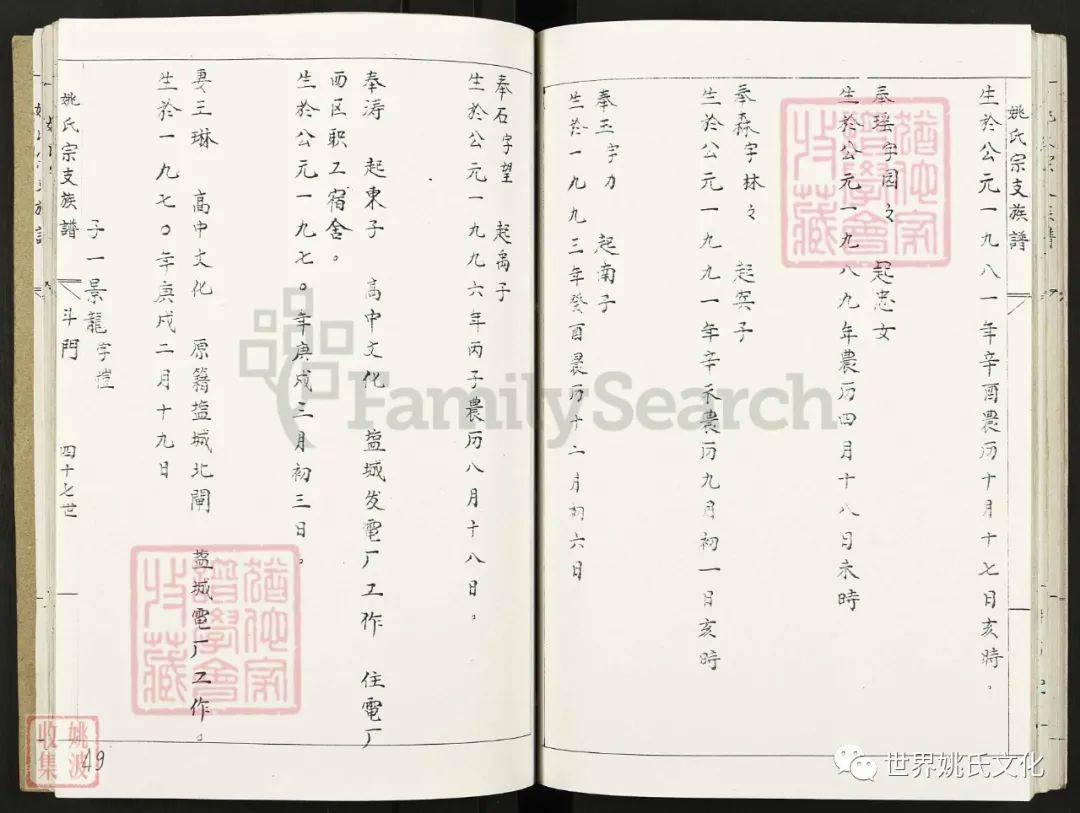 姚氏宗支族譜
生於公元一九八一年辛酉農历十月十七日亥時。
奉瑶字园々 起忠女
生於公元一九八九年農历四月十八日未時
奉森字林々 起寅子
生於公元一九九一年辛未農历九月初一日亥時
奉玉字力 起南子
生於一九九三年癸酉農历十二月初六日
奉石字望 起禹子
生於公元一九九六年丙子農历八月十八日。
奉涛 起東子 高中文化 盐城发電厂工作 住電厂
西区职工宿舍。
生於公元一九七〇年庚戍三月初三日。
妻王琳 高中文化 原籍盐城北閘 盐城電厂工作。
生於一九七〇年庚戍二月十九日
子一景龍字
姚氏宗支族譜 斗門 四十七世
49
姚波
收集
FamilySearch
收藏
譜學會
收藏
譜學會
世界姚氏文化